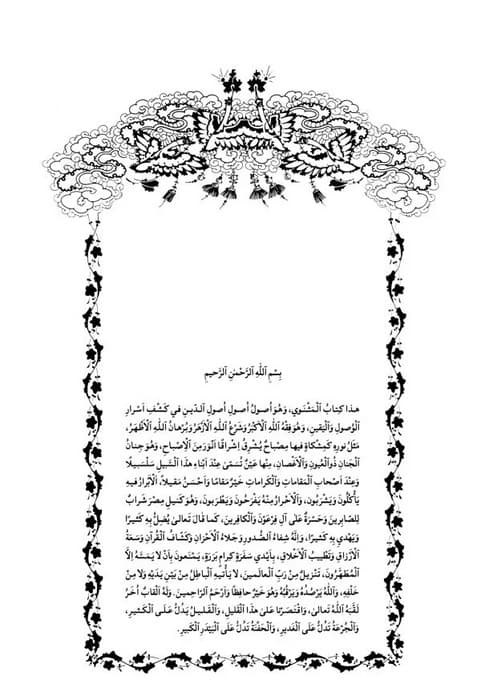 بِسْمِ ٱللّٰهِ ٱلرَّحْمٰنِ ٱلرَّحيمِ
هذا كِتابُ ٱلْمَثْنَوي، وَهُوَ أُصولُ أُصولِ أُصولِ ٱلدّينِ في كَشْفِ أَسْرارِ
ٱلْوُصولِ وَٱلْيَقينِ، وَهُوَ فِقْهُ ٱللّٰهِ ٱلْأَكْبَرُ وَشَرْعُ ٱللّٰهِ ٱلْأَزْهَرُ وَبُرْهانُ ٱللّٰهِ ٱلْأَظْهَرُ،
مَثَلُ نورِهِ كَمِشْكاةٍ فيها مِصْباحٌ يُشْرِقُ إِشْراقًا أَنْوَرَ مِنَ ٱلْإِصْباحِ، وَهُوَ جِنانُ
ٱلْجَنانِ ذو ٱلْعُيونِ وَٱلْأَغْصانِ، مِنْها عَيْنٌ تُسَمّىٰ عِنْدَ أَبْناءِ هذَا ٱلسَّبيلِ سَلْسَبيلًا
وَعِنْدَ أَصْحابِ ٱلْمَقاماتِ وَٱلْكَراماتِ خَيْرٌ مَقامًا وَأَحْسَنُ مَقيلًا، ٱلْأَبْرارُ فيهِ
يَأْكُلونَ وَيَشْرَبونَ، وَٱلْأَحْرارُ مِنْهُ يَفْرَحونَ وَيَطْرَبونَ، وَهُوَ كَنيلِ مِصْرَ شَرابٌ
لِلصّابِرينَ وَحَسْرَةٌ عَلىٰ آلِ فِرْعَوْنَ وَٱلْكافِرينَ، كَما قالَ تَعالىٰ يُضِلُّ بِهِ كَثيرًا
وَيَهْدي بِهِ كَثيرًا، وَإِنَّهُ شِفاءُ ٱلصُّدورِ وَجَلاءُ ٱلْأَحْزانِ وَكَشّافُ ٱلْقُرْآنِ وَسَعَةُ
ٱلْأَرْزاقِ وَتَطْييبُ ٱلْأَخْلاقِ، بِأَيْدي سَفَرَةٍ كِرامٍ بَرَرَةٍ، يَمْنَعونَ بِأَنْ لا يَمَسَّهُ إِلَّا
ٱلْمُطَهَّرونَ، تَنْزيلٌ مِنْ رَبِّ ٱلْعالَمينَ، لا يَأْتيهِ ٱلْباطِلُ مِنْ بَيْنِ يَدَيْهِ وَلا مِنْ
خَلْفِهِ، وَٱللّٰهُ يَرْصُدُهُ وَيَرْقُبُهُ وَهُوَ خَيْرٌ حافِظًا وَأَرْحَمُ ٱلرّاحِمينَ. وَلَهُ أَلْقابٌ أُخَرُ
لَقَّبَهُ ٱللّٰهُ تَعالىٰ، وَٱقْتَصَرْنا عَلىٰ هذَا ٱلْقَليلِ، وَٱلْقَليلُ يَدُلُّ عَلَى ٱلْكَثيرِ،
وَٱلْجُرْعَةُ تَدُلُّ عَلَى ٱلْغَديرِ، وَٱلْحَفْنَةُ تَدُلُّ عَلَى ٱلْبَيْدَرِ ٱلْكَبيرِ.